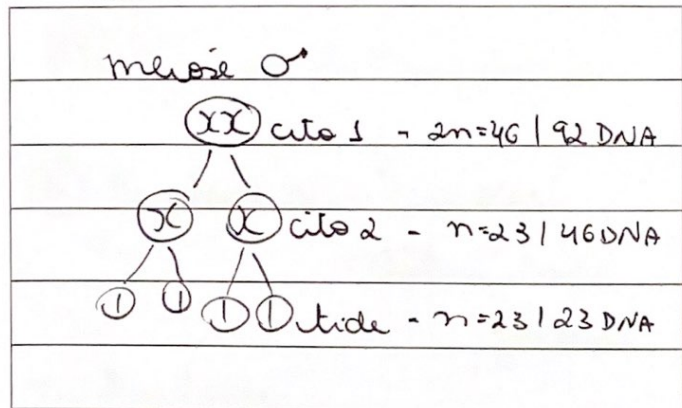 meiose ♂
XX cito 1 - 2n=46 | 92 DNA
X X cito 2 - n=23 | 46 DNA
I I I I tide - n=23 | 23 DNA